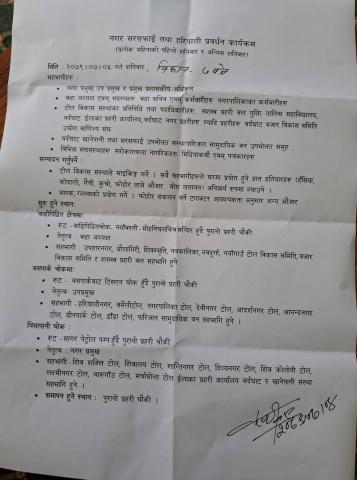 नगर सरसफाई तथा हरियाली प्रवर्धन कार्यक्रम
(प्रत्येक महिनाको पहिलो शनिबार र अन्तिम शनिबार)
मिति : २०७९।०७।०५ गते शनिबार, बिहान ७ बजे
सहभागीहरु :
• नगर प्रमुख, उप प्रमुख र प्रमुख प्रशासकिय अधिकृत
• वडा अध्यक्ष एवम् सदस्यहरु वडा सचिव एवम् कर्मचारीहरु नगरपालिकाका कर्मचारीहरु
• टोल विकास संस्थाका प्रतिनिधि तथा पदाधिकारीहरु, सशस्त्र प्रहरी बल मुक्ति तालिम महाविद्यालय,
बर्दघाट ईलाका प्रहरी कार्यालय, बर्दघाट नगर प्रहरीहरु म्यादि प्रहरीहरु बर्दघाट बजार विकास समिति
उद्योग बाणिज्य संघ
• बर्दघाट खानेपानी तथा सरसफाई उपभोक्ता संस्था पारिजात सामुदायिक बन उपभोक्ता समुह
• बिभिन्न संघसंस्थाहरु सरोकारवाला नागरिकहरु मिडियाकर्मी एवम् पत्रकारहरु
सम्पादन गर्नुपर्ने :
• टोल विकास संस्थाले माइकिङ्ग गर्ने । सबै सहभागीहरुले घरमा प्रयोग हुने हात हतियारहरु (हँसिया,
कोदालो, गैँची, कुचो, फोहोर तान्ने औजार बोरा लगायत) अनिवार्य रुपमा ल्याउने ।
• मास्क, ग्लोब्सको प्रयोग गर्ने । फोहोर संकलन गर्ने ट्याक्टर आवश्यकता अनुसार अन्य औजार
सुरु हुने स्थान:
बाहिपिडित क्षेत्रमा:
• रुट - बाहिपिडितचोक- नयाँबस्ती- मन्दिर हुँदै पुरानो प्रहरी चौकी
• नेतृत्व - वडा अध्यक्ष
• सहभागी : उपहारनगर, धौलागिरी, शिवस्मृति, नवकालिका, नवदुर्गा, नयाँगाउँ टोल विकास समिति, बजार
विकास समिति र सशस्त्र प्रहरी बल सहभागि हुने
बसपार्क चोकमा:
• रुट - बसपार्कबाट टिसएन चोक हुँदै पुरानो प्रहरी चौकी
• नेतृत्व: उपप्रमुख
• सहभागी - हरियालीनगर, बर्मेलीटोल, नगरपालिका टोल, देबीनगर टोल, आदर्शनगर टोल, आनन्दनगर
टोल, ग्रीनपार्क टोल, डाँडा टोल, पारिजात सामुदायिक वन सहभागि हुने ।
चिसापानी चोक :
• रुट -सागर पेट्रोल पम्प हुँदै पुरानो प्रहरी चौकी
• नेतृत्व : नगर प्रमुख
• सहभागी - शिव शक्ति टोल, शिवालय टोल, शान्तिनगर टोल, दिव्यनगर टोल, शिव कोलोनी टोल,
लक्ष्मीनगर टोल, थारुगाउँ टोल, टोल ईलाका प्रहरी कार्यालय बर्दघाट र खानेपानी संस्था
सहभागि हुने ।
• समापन हुने स्थान : पुरानो प्रहरी चौकी ।